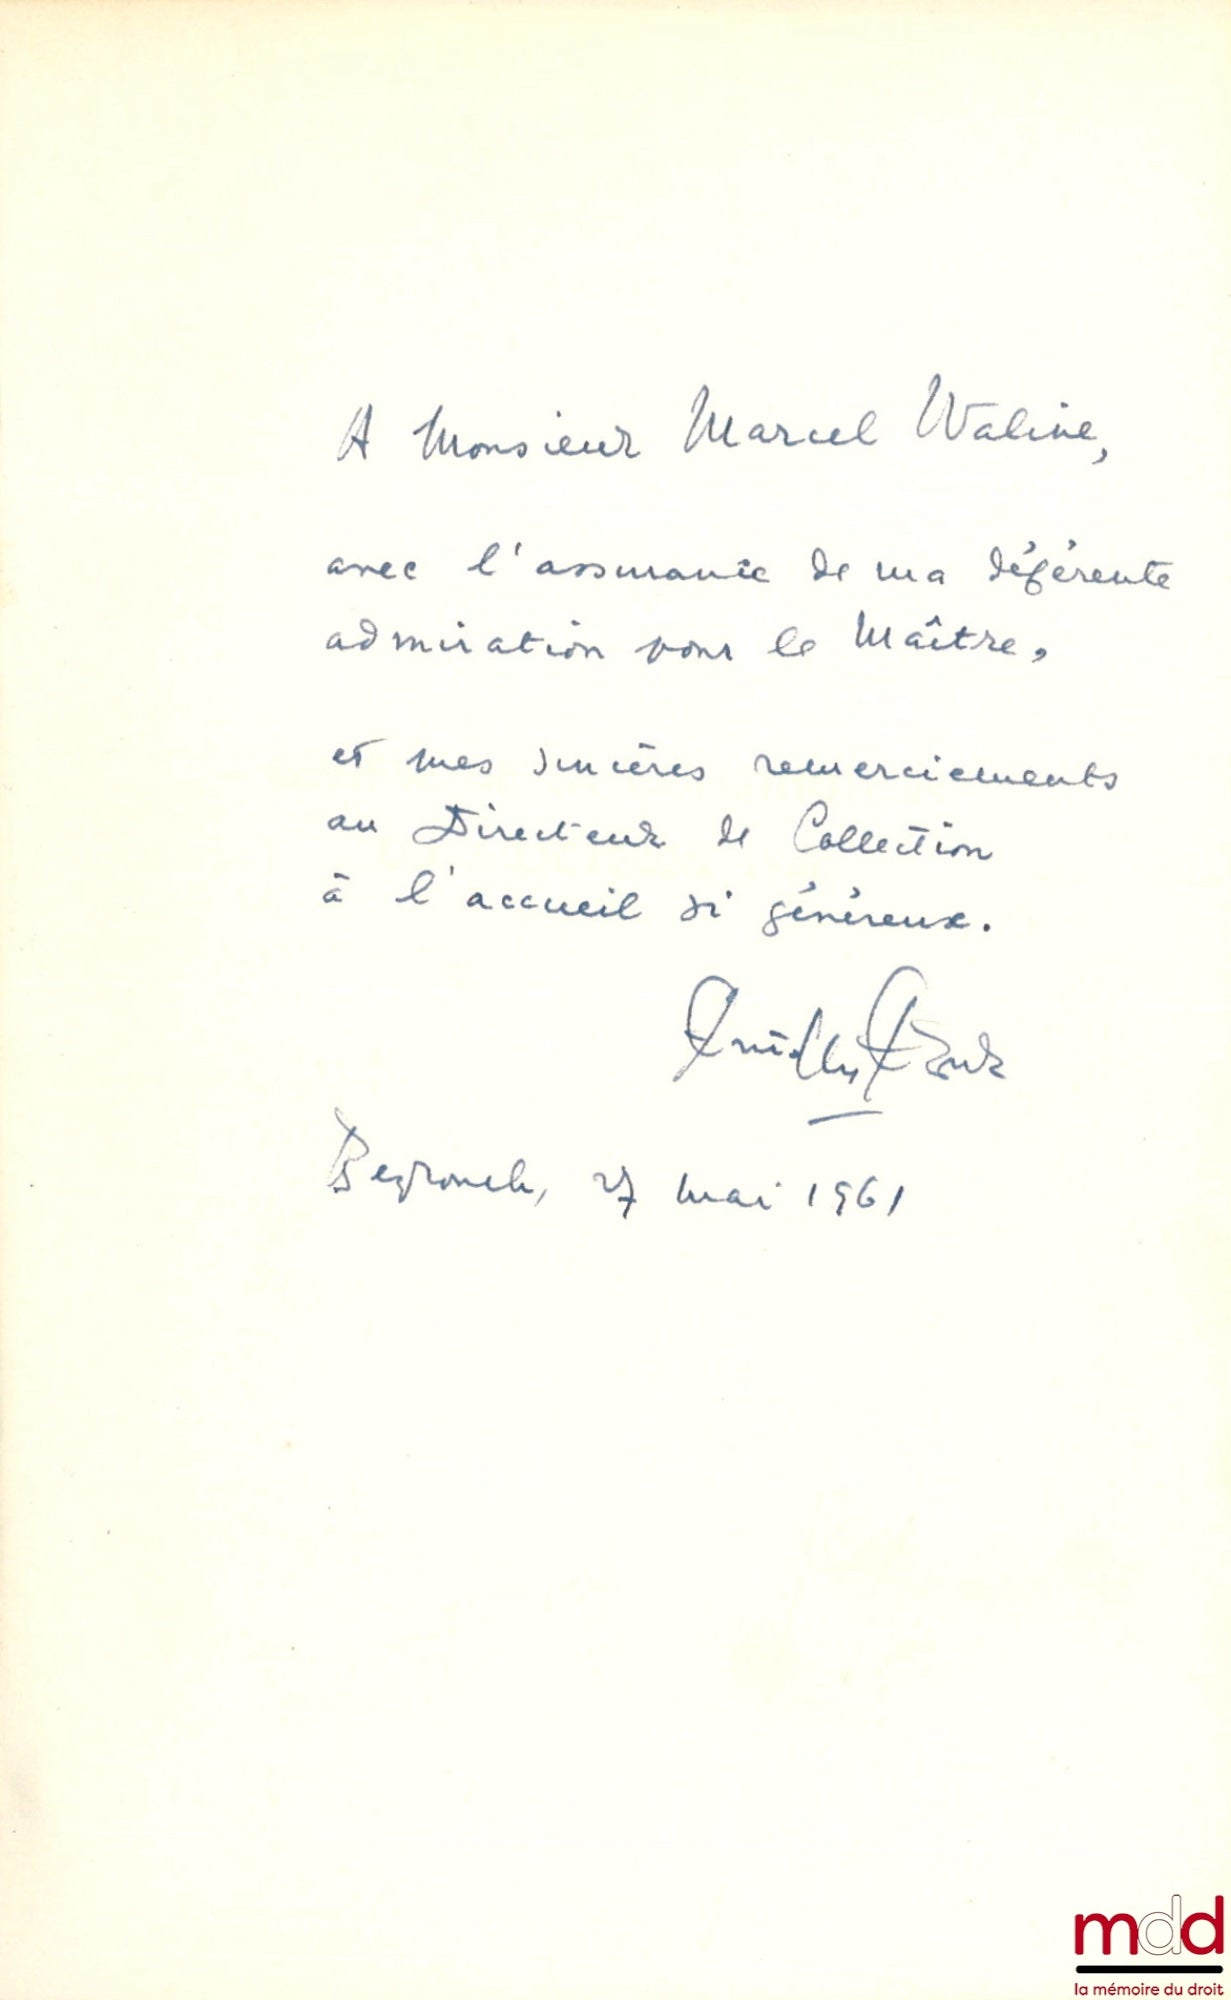 A Monsieur Marcel Waline,
avec l'assurance de ma déférente
admiration pour le Maître,
et mes sincères remerciements
au Directeur de Collection
à l'accueil si généreux.
Beyrouth, 27 mai 1961
mdd
la mémoire du droit